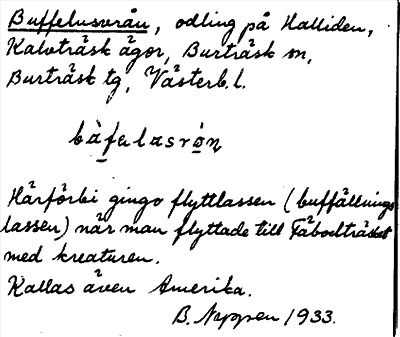 Buffelusvrån, odling på Halliden,
Kalvträsk ägor, Burträsk sn,
Burträsk tg, Västerb. l.
Härförbi gingo flyttlassen (buffällnings
lassen) när man flyttade till Fäbodträsket
med kreaturen.
Kallas även Amerika.
B. 1933.